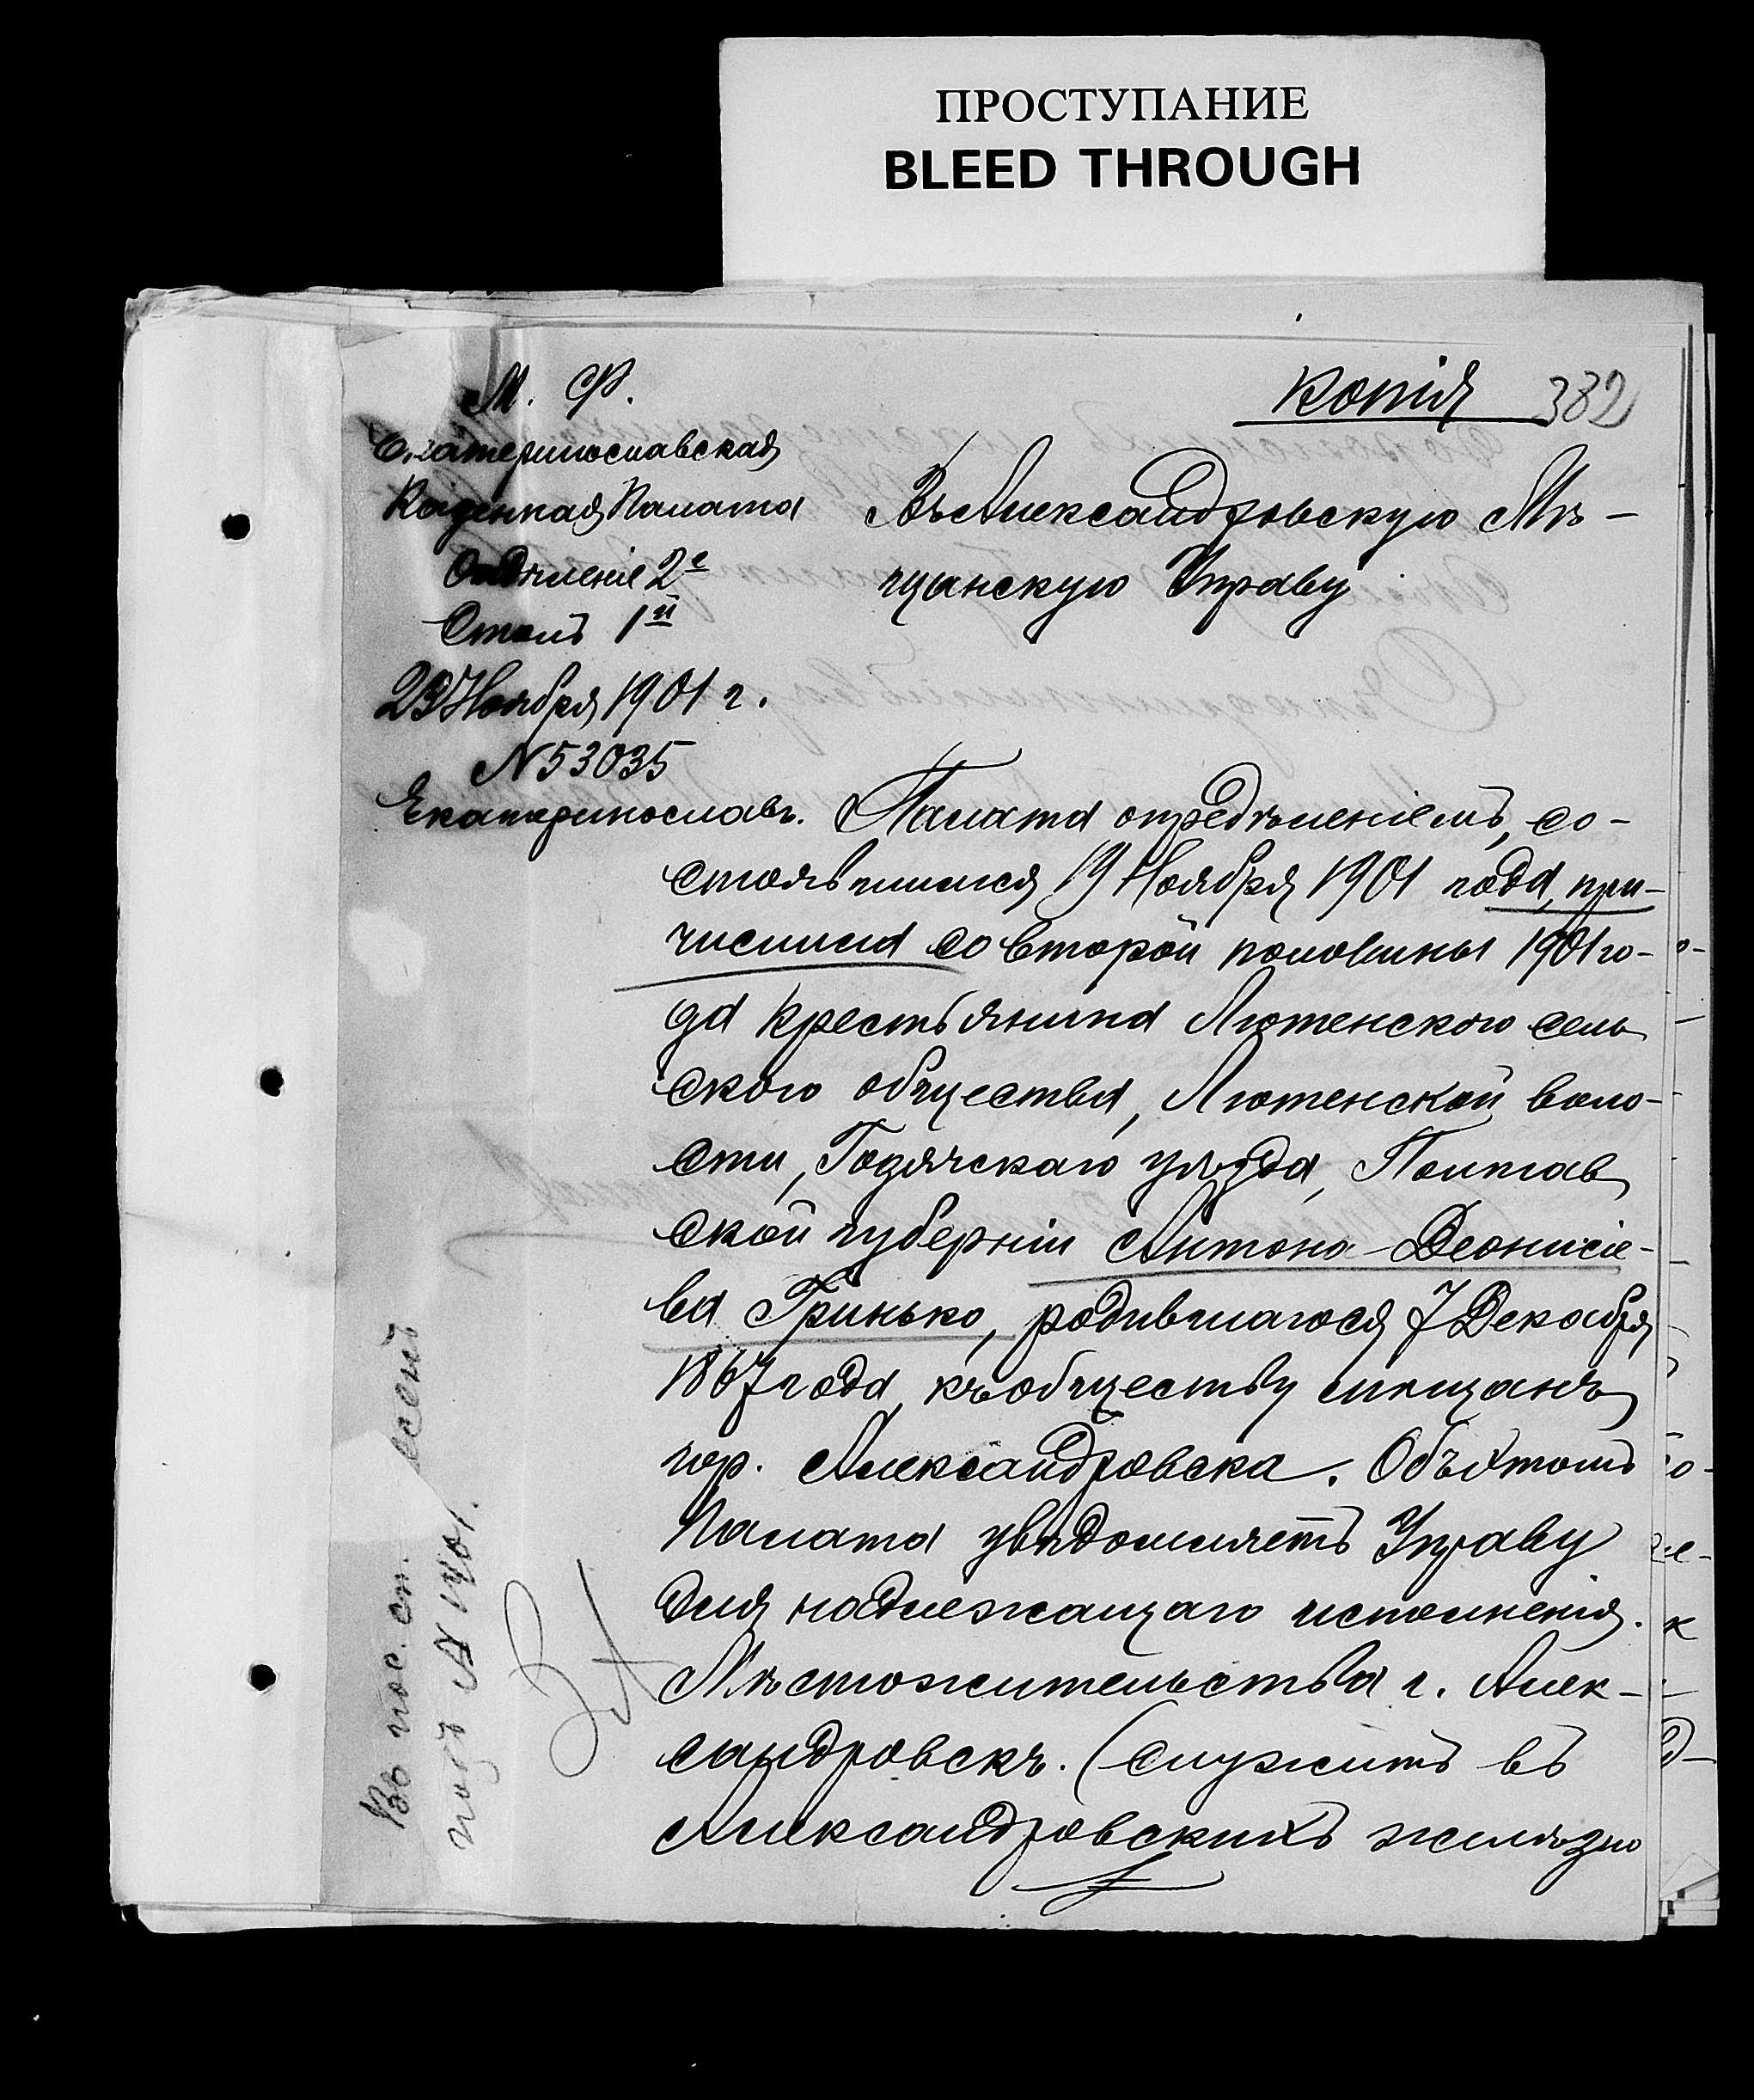 ПРОСТУПАНИЕ
BLEED THROUGH
М. Ф.
Копія 382
Екатеринославская
Казенная Палата
Отдѣленіе 2е
Столъ 1й
23 Ноября 1901 г.
N 53035
Екатеринославъ.
Въ Александровскую Мѣ-
щанскую Управу
Палата опредѣленіемъ, со-
стоявшимся 19 Ноября 1901 года, при-
числила со второй половины 1901 го-
да крестьянина Лютенского сель
ского общества, Лютенской воло-
сти, Гадячскаго уѣзда, Полтав
ской губерніи Антона Деонисіе-
ва Гринько, родившагося 7 Декабря
1867 года, къ обществу мѣщанъ
гор. Александровска. Объ этомъ
Палата увѣдомляетъ Управу
для надлежащаго исполненія.
Мѣстожительства г. Алек-
сандровскъ. (служитъ въ
Александровскихъ желѣзно
Во пос. сп.
подъ N 1401.